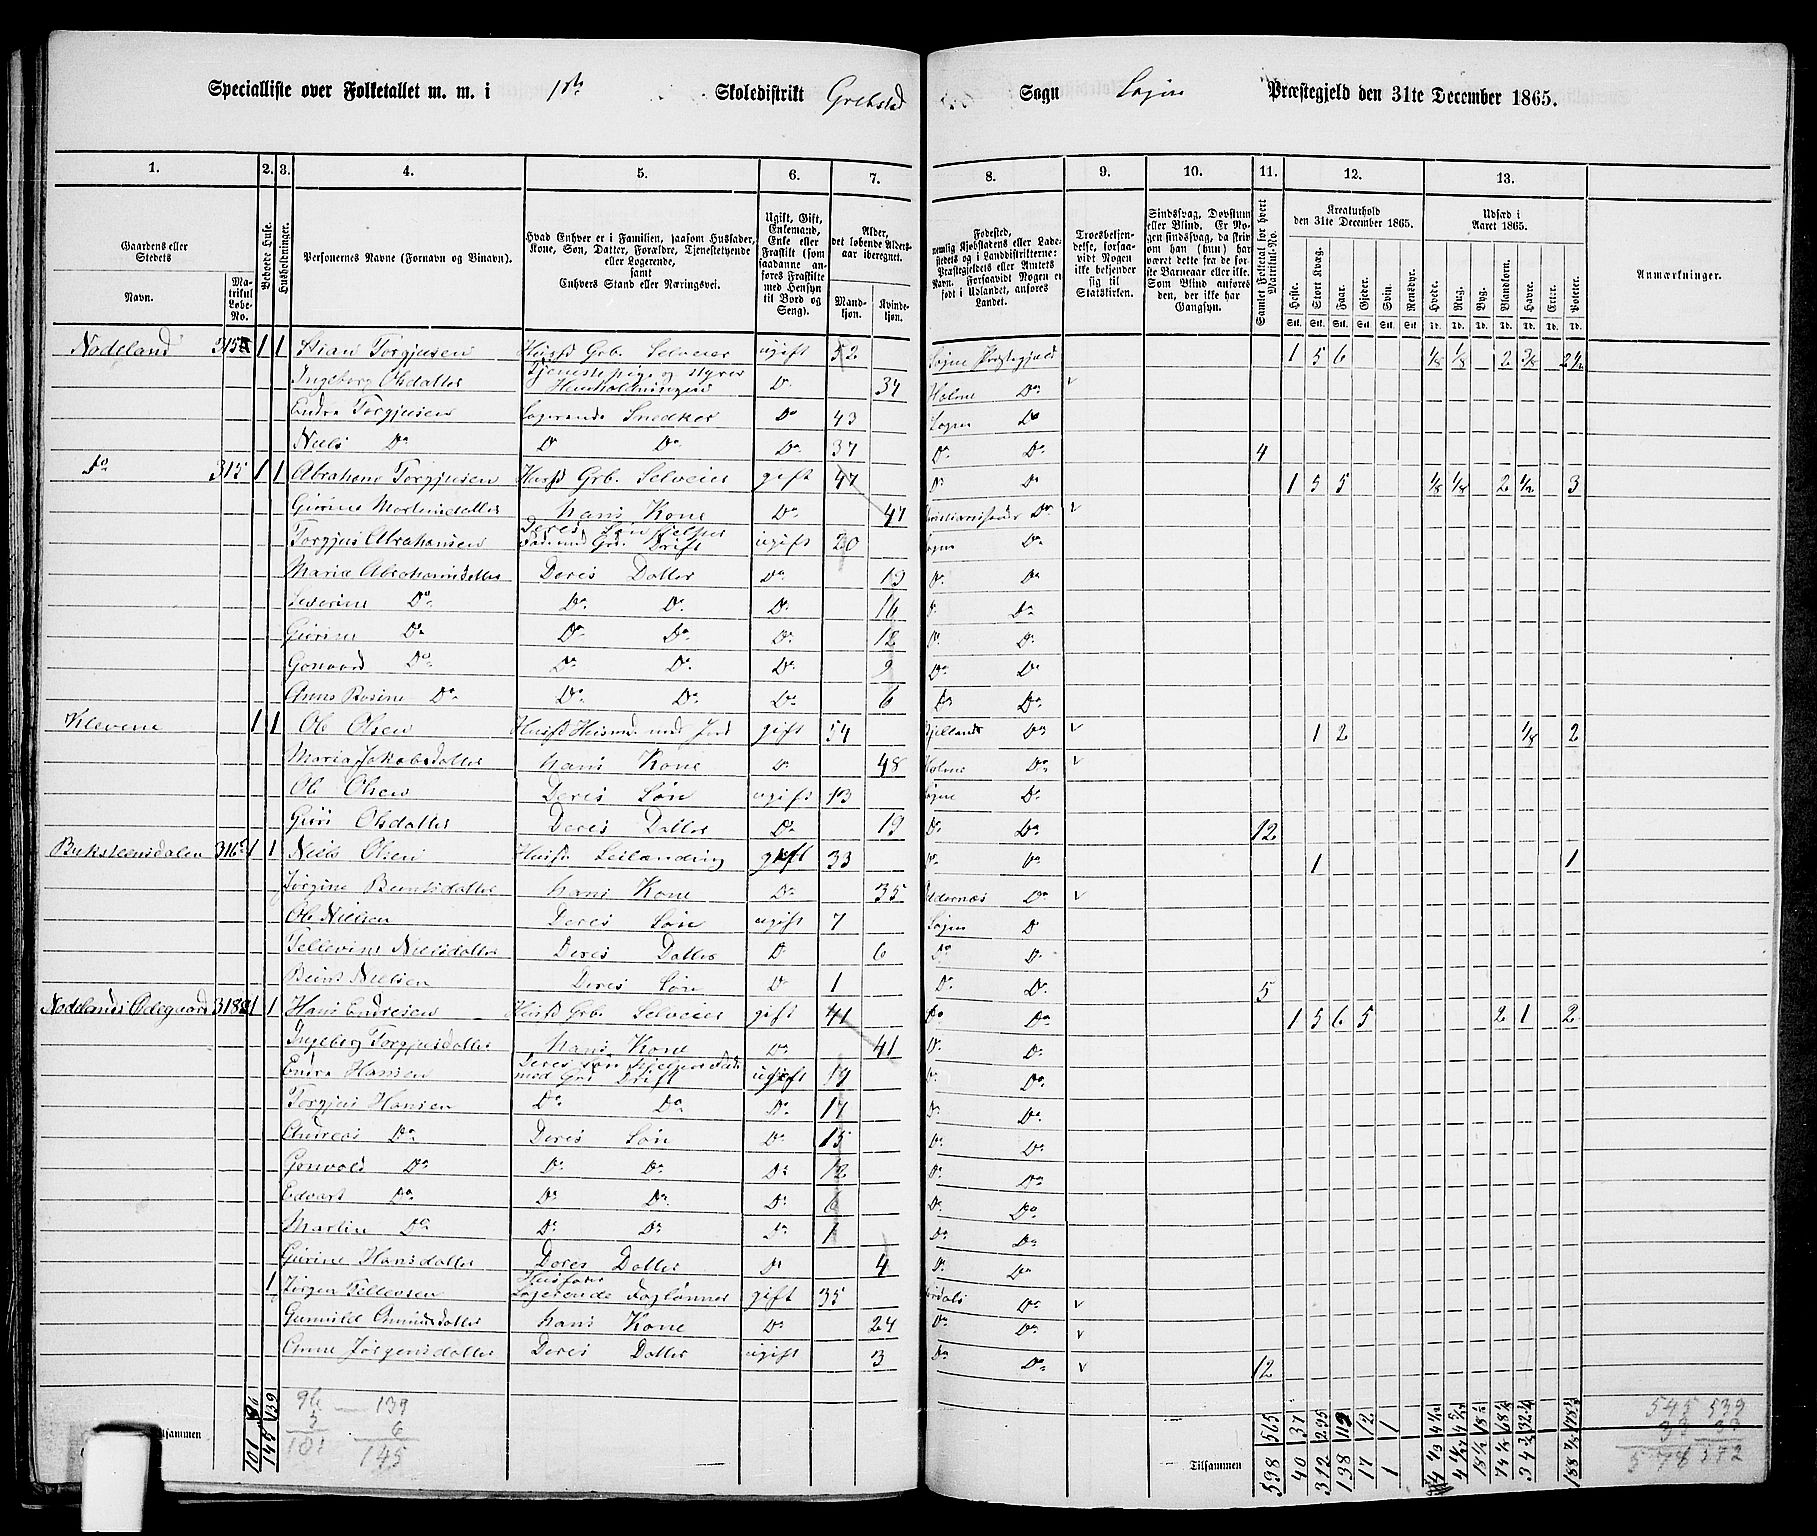 Specialliste over Folketallet m. m. i 1ste Skoledistrikt Grebstad Sogn Søgne Præstegjeld den 31te December 1865.
1. 2. 3. 4. 5. 6. 7. 8. 9. 10. 11. 12. 13.
Gaardens eller Stedets Navn. Matrikul Løbe-No. Beboede Huse. Husholdninger. Personernes Navne (Fornavn og Binavn).
Hvad Enhver er i Familien, saasom Husfader, Kone, Søn, Datter, Forældre, Tjenestetyende eller Logerende, samt Enhvers Stand eller Næringsvei.
Ugift, Gift, Enkemand, Enke eller Fraskilt (som saadanne anføres Fraskilte med Hensyn til Bord og Seng).
Alder, det løbende Alders-aar iberegnet. Mand-kjøn. Kvinde-kjøn.
Troesbekjendelse, forsaavidt Nogen ikke bekjender sig til Statskirken.
Sindssvag, Døvstum eller Blind. Er Nogen sindssvag, da skriv om han (hun) har været dette fra de første Barneaar eller ikke. Som Blind anføres den, der ikke har Gangsyn.
Samlet Folketal for hvert Matrikul-No.
Kreaturhold den 31te December 1865. Heste. Stort Kvæg. Faar. Gjeder. Svin. Rensdyr.
Udsæd i Aaret 1865. Hvede. Rug. Byg. Blandkorn. Havre. Erter. Poteter.
Anmærkninger.
Nodeland 315a 1 1 Stian Torgjusen Husfd Grb. Selveier ugift 52 Søgne Præstegjeld 1 5 6 1/8 1/8 2 3/8 2 1/2
Ingeborg Olsdatter Tjenestepige og styrer Huusholdningen Do 34 Holme Do
Endre Torgjusen Logerende Snedker Do 43 Søgne Do
Niels Do Do Do Do 37 Do Do 4
Do 315 1 1 Abraham Torgjusen Husfd Grb. Selveier gift 47 Do Do 1 5 5 1/8 1/8 2 1/2 3
Gurine Martinsdatter hans Kone Do 47 Christianssand Do
Torgjus Abrahamsen Deres Søn hjelper Fader med Grd. Drift ugift 20 Søgne Do
Marie Abrahamsdatter Deres Datter Do 19 Do Do
Severine Do Do Do Do 16 Do Do
Gurine Do Do Do Do 12 Do Do
Gonvord Do Do Do Do 9 Do Do
Anne Rosine Do Do Do Do 6 Do Do
Klevene 1 1 Ole Olsen Husfd Husmd med Jord gift 54 Bjelland Do 1 2 1/8 2
Maria Jakobsdatter hans Kone Do 48 Holme Do
Ole Olsen Deres Søn ugift 13 Søgne Do
Guri Olsdatter Deres Datter Do 19 Do Do 12
Buksteensdalen 316 1 1 Niels Olsen Husfd Leilænding gift 33 Do Do 1 1
Jørgine Berntsdatter hans Kone Do 35 Oddernæs Do
Ole Nielsen Deres Søn ugift 7 Søgne Do
Tellevine Nielsdatter Deres Datter Do 6 Do Do
Bernt Nielsen Deres Søn Do 1 Do Do 5
Nodelands Ødegaard 318 1 1 Hans Endresen Husfd Grb. Selveier gift 41 Do Do 1 5 6 5 2 1 2
Ingeborg Torgjusdatter hans Kone Do 41 Do Do
Endre Hansen Deres Søn hjelper Fader med Grd Drift ugift 19 Do Do
Torgjus Hansen Do Do Do 17 Do Do
Andreas Do Deres Søn Do 15 Do Do
Gonvald Do Do Do Do 12 Do Do
Edvart Do Do Do Do 6 Do Do
Martin Do Do Do Do 1 Do Do
Gurine Hansdatter Deres Datter Do 4 Do Do
1 Jørgen Tellevsen Husfader Logerende Daglønner gift 35 Do
Gunnild Omundsdatter hans Kone Do 24 Do Do
Anne Jørgensdatter Deres Datter ugift 3 Do Do 12
96 — 139
5 6
101 145
101 145 139
Tilsammen 598 565 40 37 312 295 198 17 12 1 1
545 539
33 33
578 572